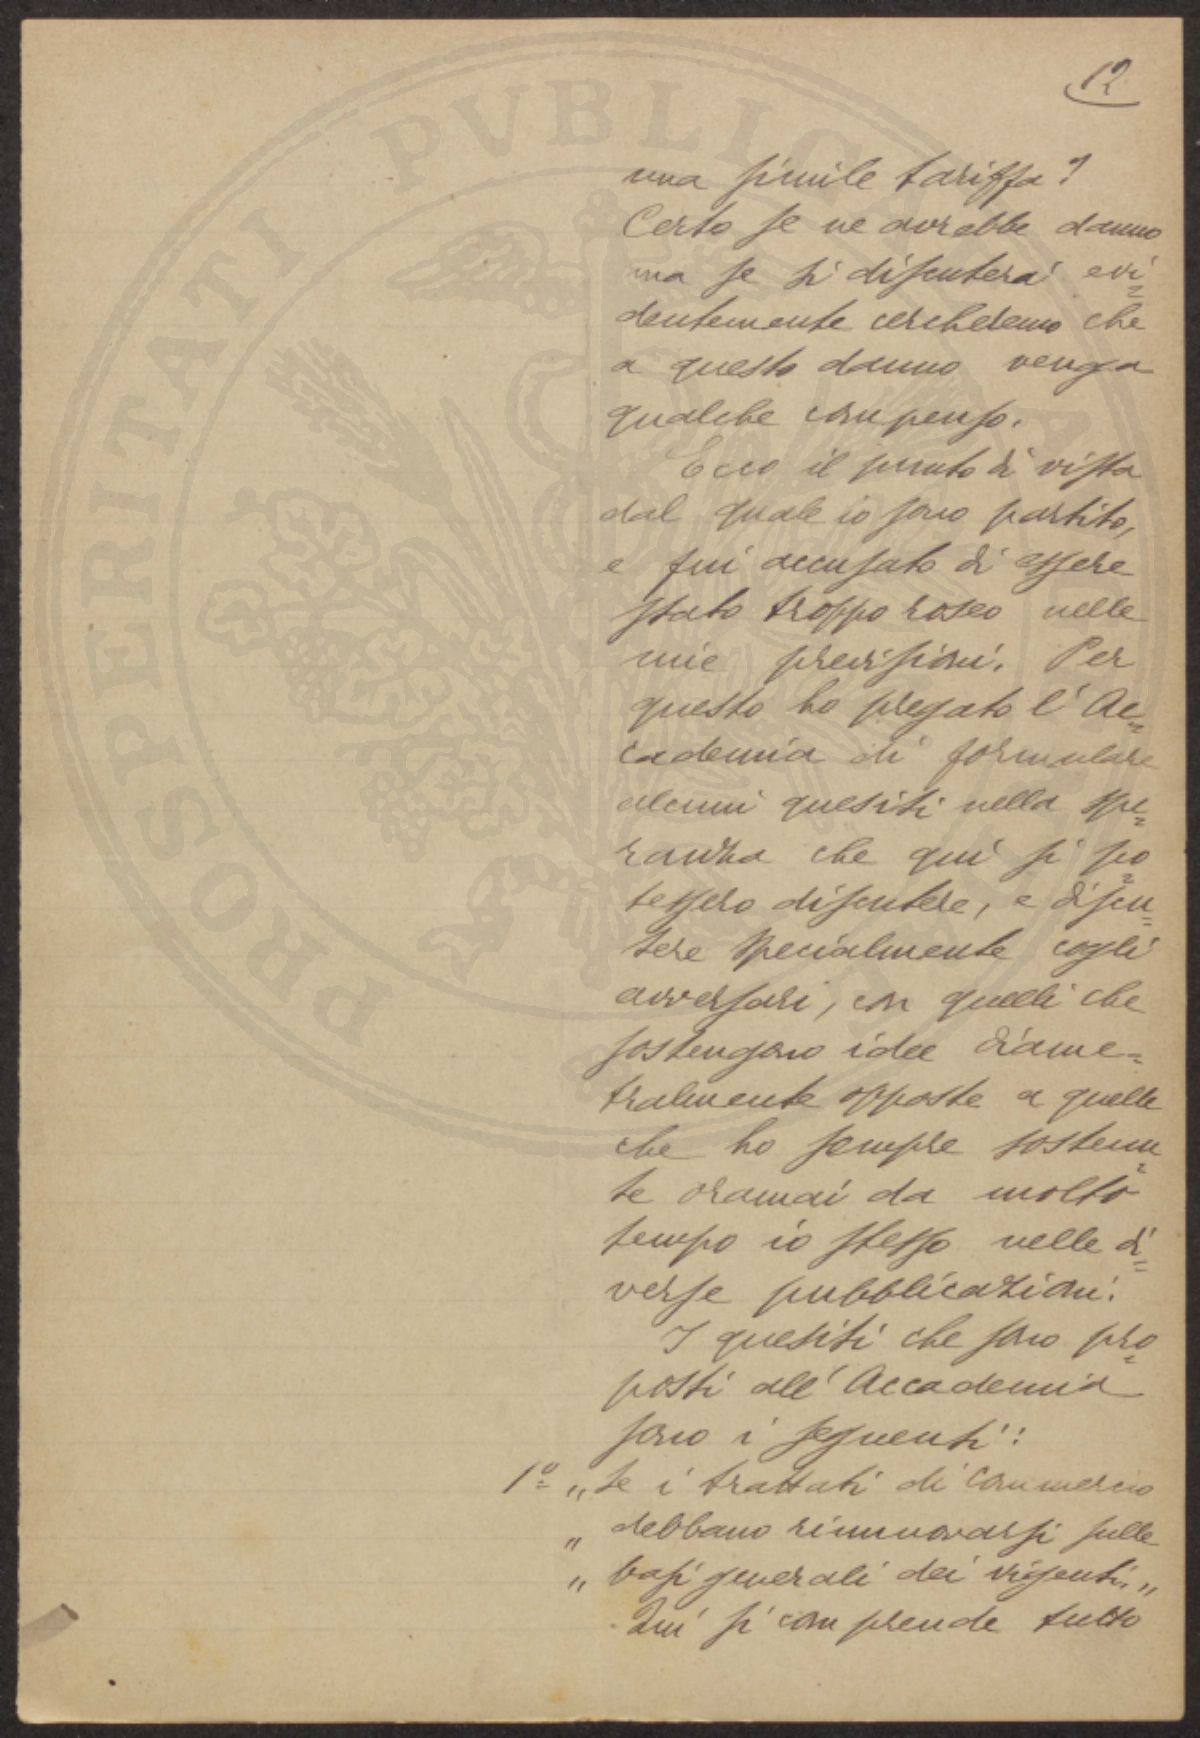 12
una simile tariffa?
Certo se ne avrebbe danno
ma se si discuterà evi=
dentemente cercheremo che
a questo danno venga
qualche compenso.
Ecco il punto di vista
dal quale io sono partito,
e fui accusato di essere
stato troppo roseo nelle
mie previsioni. Per
questo ho pregato l'Ac=
cademia di formulare
alcuni quesiti nella spe=
ranza che qui si po=
tessero discutere, e discu=
tere specialmente cogli
avversari, con quelli che
sostengono idee diame=
tralmente opposte a quelle
che ho sempre sostenu=
te oramai da molto
tempo io stesso nelle di=
verse pubblicazioni.
I quesiti che sono pro=
posti all'Accademia
sono i seguenti:
1º „ Se i trattati di Commercio
„ debbano rinnovarsi sulle
„ basi generali dei vigenti. „
Qui si comprende tutto
PROSPERITATI PVBLICAE